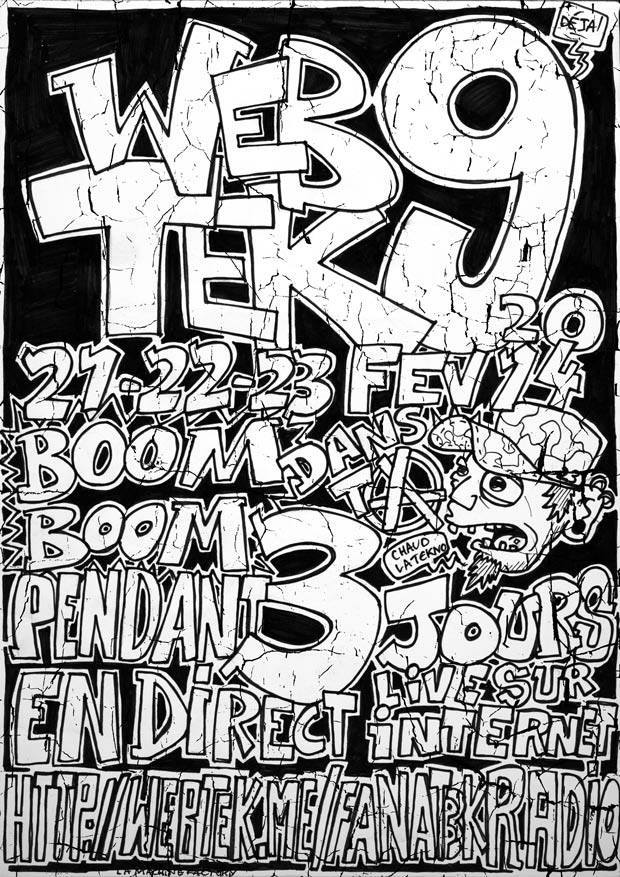 DEJA!
WEB 9
TEK
2014
21-22-23 FEV
BOOM DANS TA
BOOM
CHAUD
LATEKNO
PENDANT 3 JOURS
EN DIRECT LIVE SUR
INTERNET
HTTP://WEBTEK.ME/FANATEKRADIO
LA MACHINE FACTORY